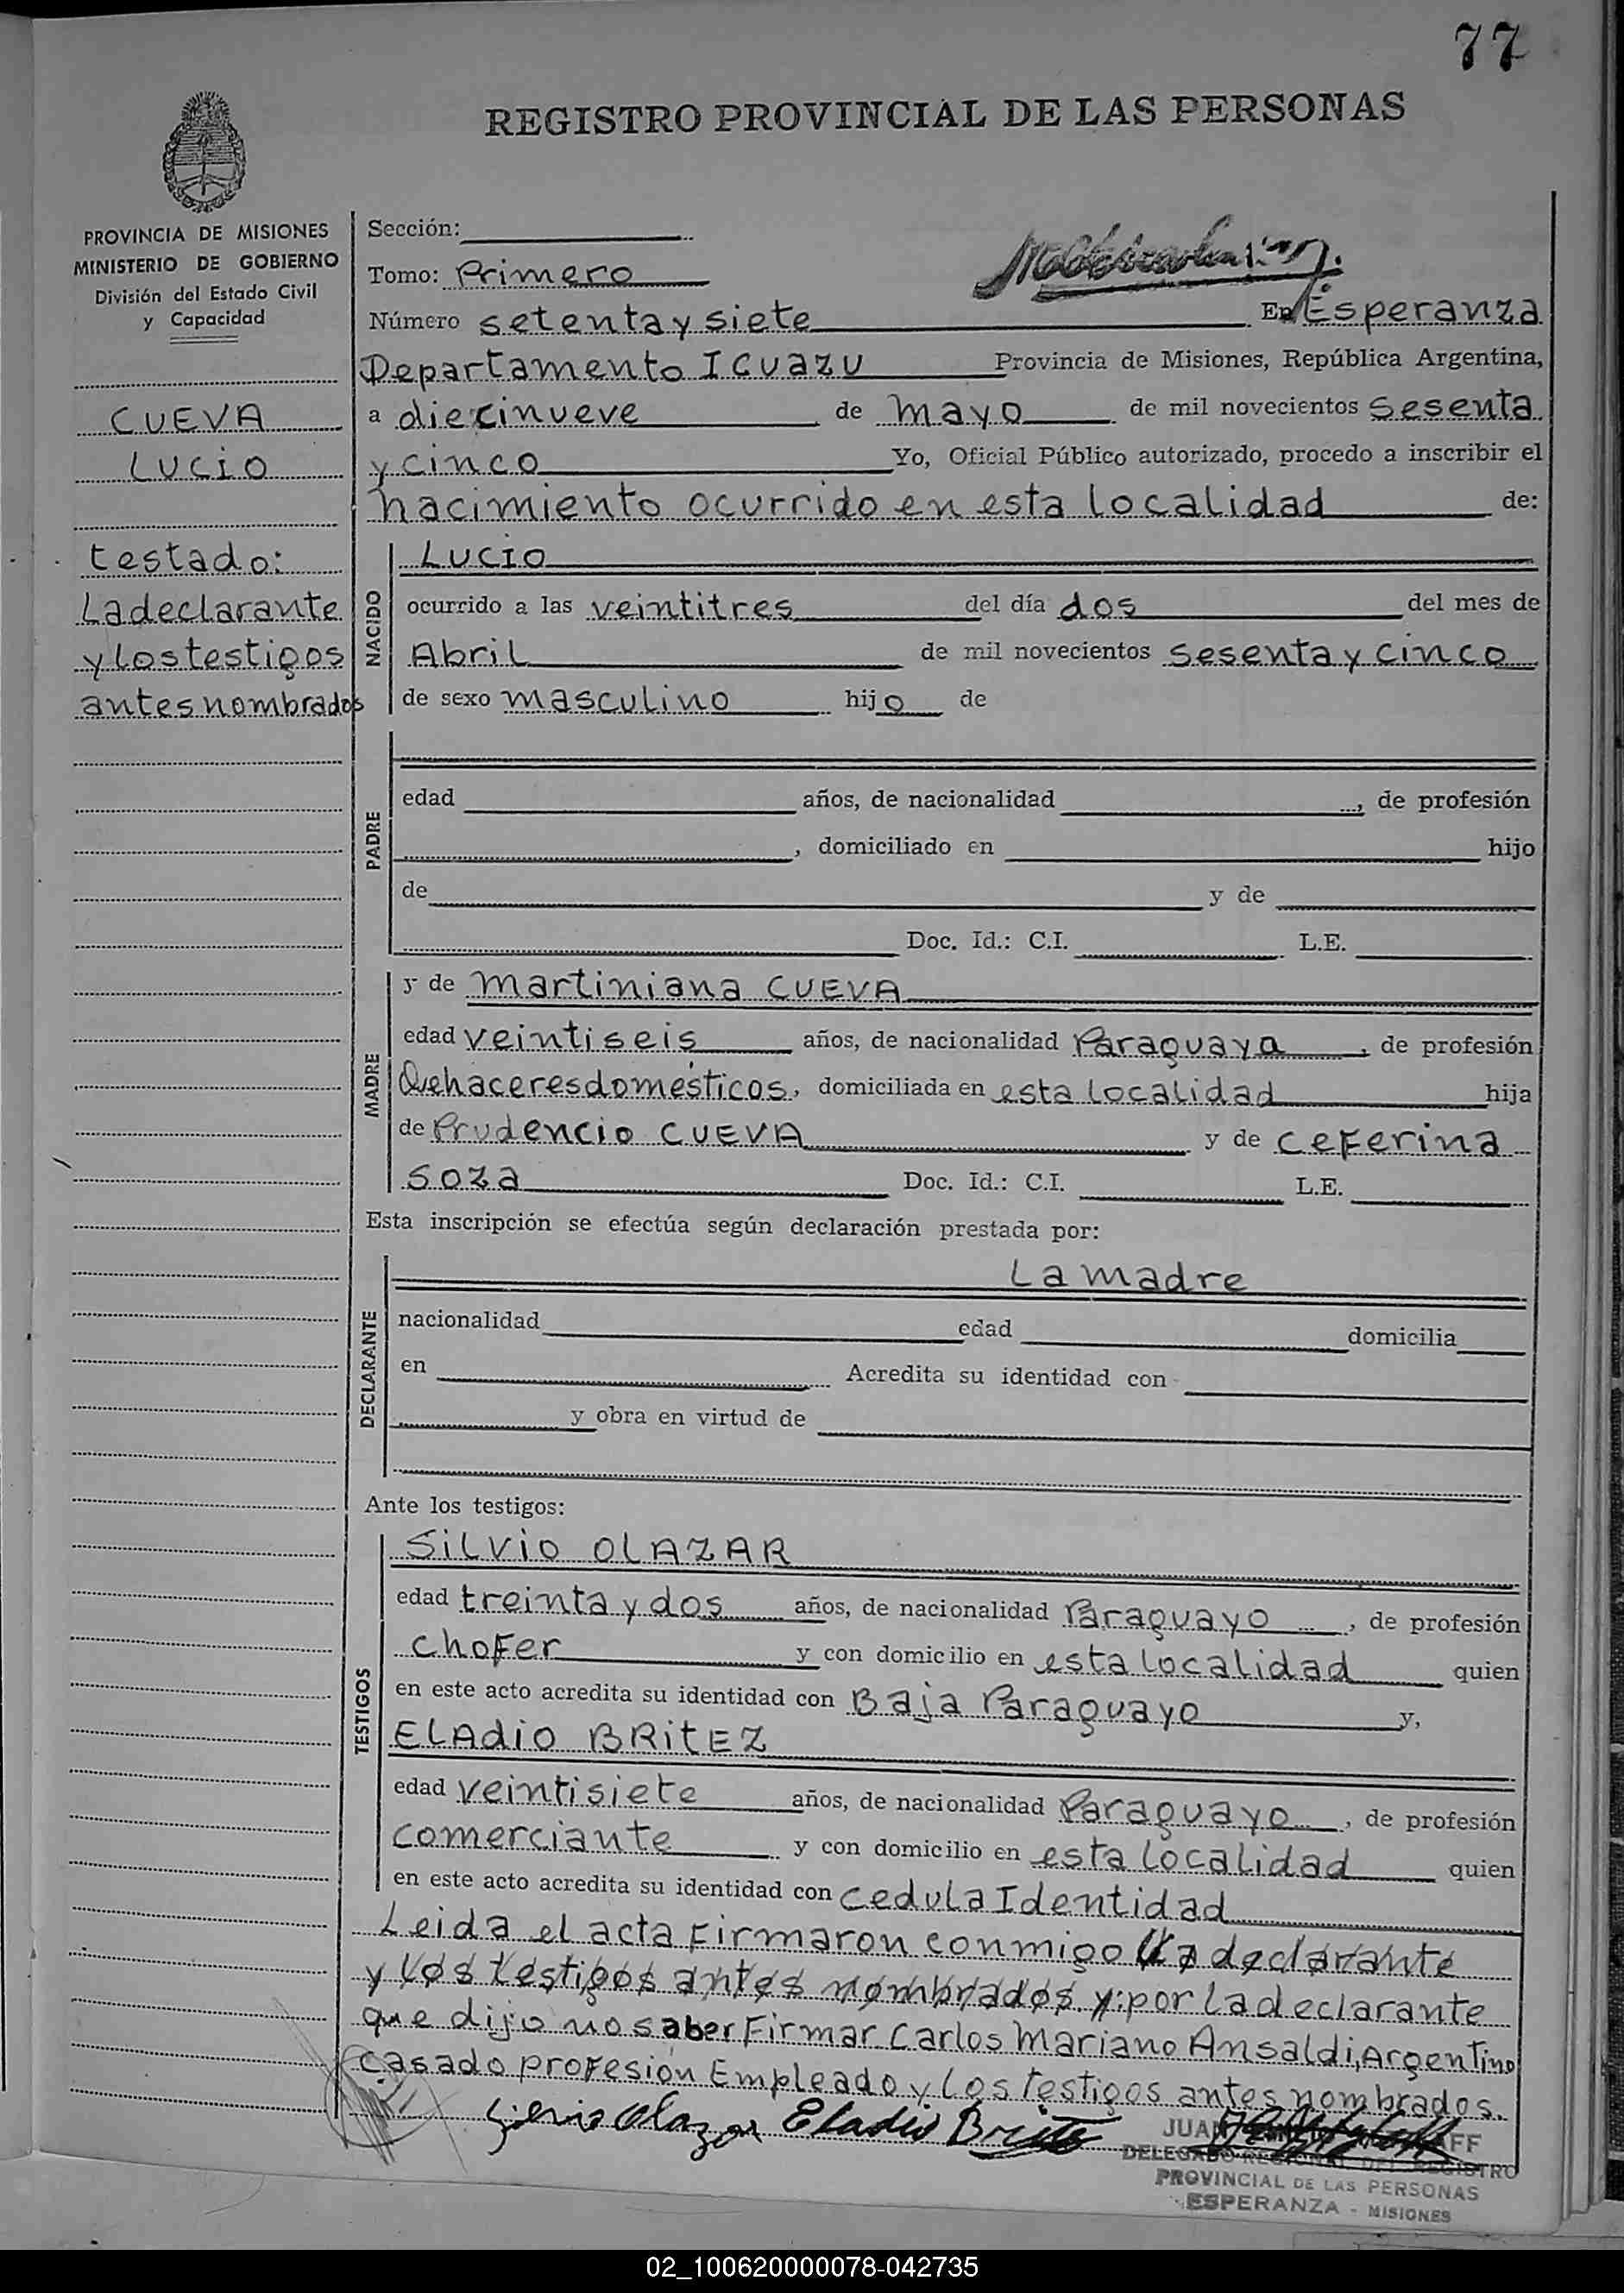 77
REGISTRO PROVINCIAL DE LAS PERSONAS
PROVINCIA DE MISIONES
MINISTERIO DE GOBIERNO
División del Estado Civil
y Capacidad
CUEVA
LUCIO
testado:
La declarante
y los testigos
antes nombrados
Sección:
Tomo: Primero
Número setenta y siete En Esperanza
Departamento IGUAZU Provincia de Misiones, República Argentina,
a diecinueve de mayo de mil novecientos sesenta
y cinco Yo, Oficial Público autorizado, procedo a inscribir el
nacimiento ocurrido en esta localidad de:
NACIDO
LUCIO
ocurrido a las veintitres del día dos del mes de
Abril de mil novecientos sesenta y cinco
de sexo masculino hijo de
PADRE
edad años, de nacionalidad , de profesión
, domiciliado en hijo
de y de
Doc. Id.: C.I. L.E.
MADRE
y de Martiniana CUEVA
edad veintiseis años, de nacionalidad Paraguaya, de profesión
Quehaceres domésticos, domiciliada en esta localidad hija
de Prudencio CUEVA y de Ceferina
Soza Doc. Id.: C.I. L.E.
Esta inscripción se efectúa según declaración prestada por:
DECLARANTE
La madre
nacionalidad edad domicilia
en Acredita su identidad con
y obra en virtud de
Ante los testigos:
TESTIGOS
SILVIO OLAZAR
edad treinta y dos años, de nacionalidad Paraguayo, de profesión
chofer y con domicilio en esta localidad quien
en este acto acredita su identidad con Baja Paraguayo y,
ELADIO BRITEZ
edad veintisiete años, de nacionalidad Paraguayo, de profesión
comerciante y con domicilio en esta localidad quien
en este acto acredita su identidad con cedula Identidad
Leida el acta firmaron conmigo La declarante
y los testigos antes nombrados y: por la declarante
que dijo no saber firmar Carlos Mariano Ansaldi, Argentino
casado profesión Empleado y los testigos antes nombrados.
Silvio Olazar Eladio Britez
JUAN
DELEGADO REGIONAL DEL REGISTRO
PROVINCIAL DE LAS PERSONAS
ESPERANZA - MISIONES
02_100620000078-042735